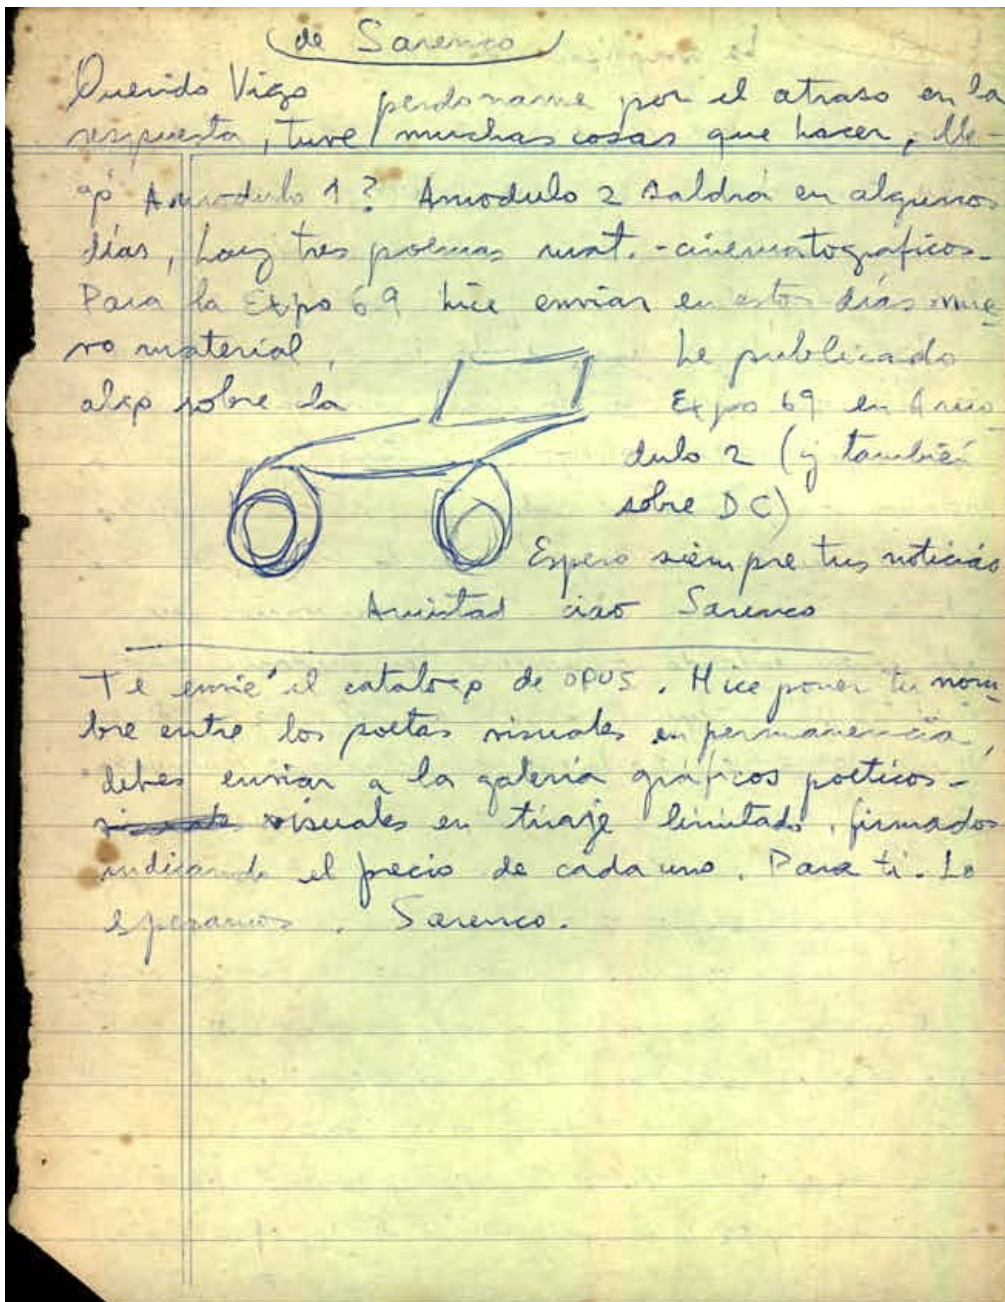 de Sarenco
Querido Vigo perdoname por el atraso en la
respuesta, tuve muchas cosas que hacer, lle-
gó Amodulo 1? Amodulo 2 saldrá en algunos
días, hay tres poemas -cinematograficos-
Para la Expo 69 hice enviar en estos días nue
vo material, he publicado
algo sobre la Expo 69 en Amo
dulo 2 (y también
sobre DC)
Espero siempre tus noticias
Amistad ciao Sarenco
Te envié el catalogo de OPUS. Hice poner tu nom
bre entre los poetas visuales en permanencia,
debes enviar a la galería gráficos poéticos-
visuales en tiraje limitado, firmados
indicando el precio de cada uno. Para ti. Lo
esperamos. Sarenco.